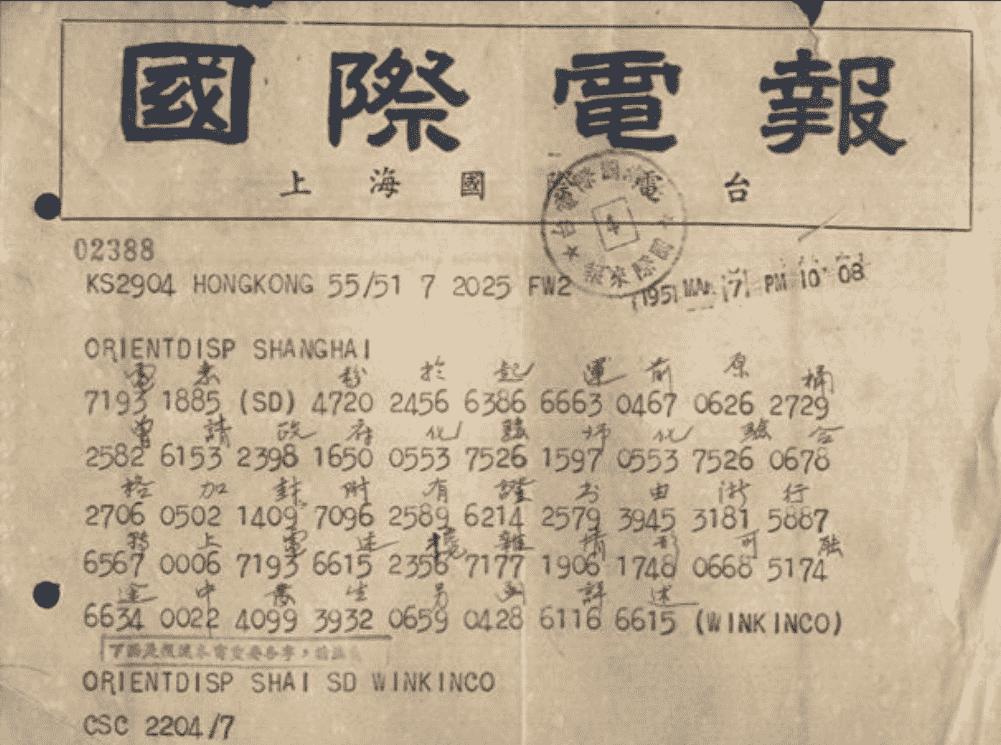 國際電報
上海國際電台
02388
KS2904 HONGKONG 55/51 7 2025 FW2
1951 MAR 7 PM 10 08
ORIENTDISP SHANGHAI
電悉 粉於起運前原桶
7193 1885 (SD) 4720 2456 6386 6663 0467 0626 2729
曾請政府化驗師化驗合
2582 6153 2398 1650 0553 7526 1597 0553 7526 0678
格加封附有證书由浙行
2706 0502 1409 7096 2589 6214 2579 3945 3181 5887
轉上電述 雜情形可能
6567 0006 7193 6615 2356 7177 1906 1748 0668 5174
途中發生另函詳述
6634 0022 4099 3932 0659 0428 6116 6615 (WINKINCO)
ORIENTDISP SHAI SD WINKINCO
CSC 2204/7